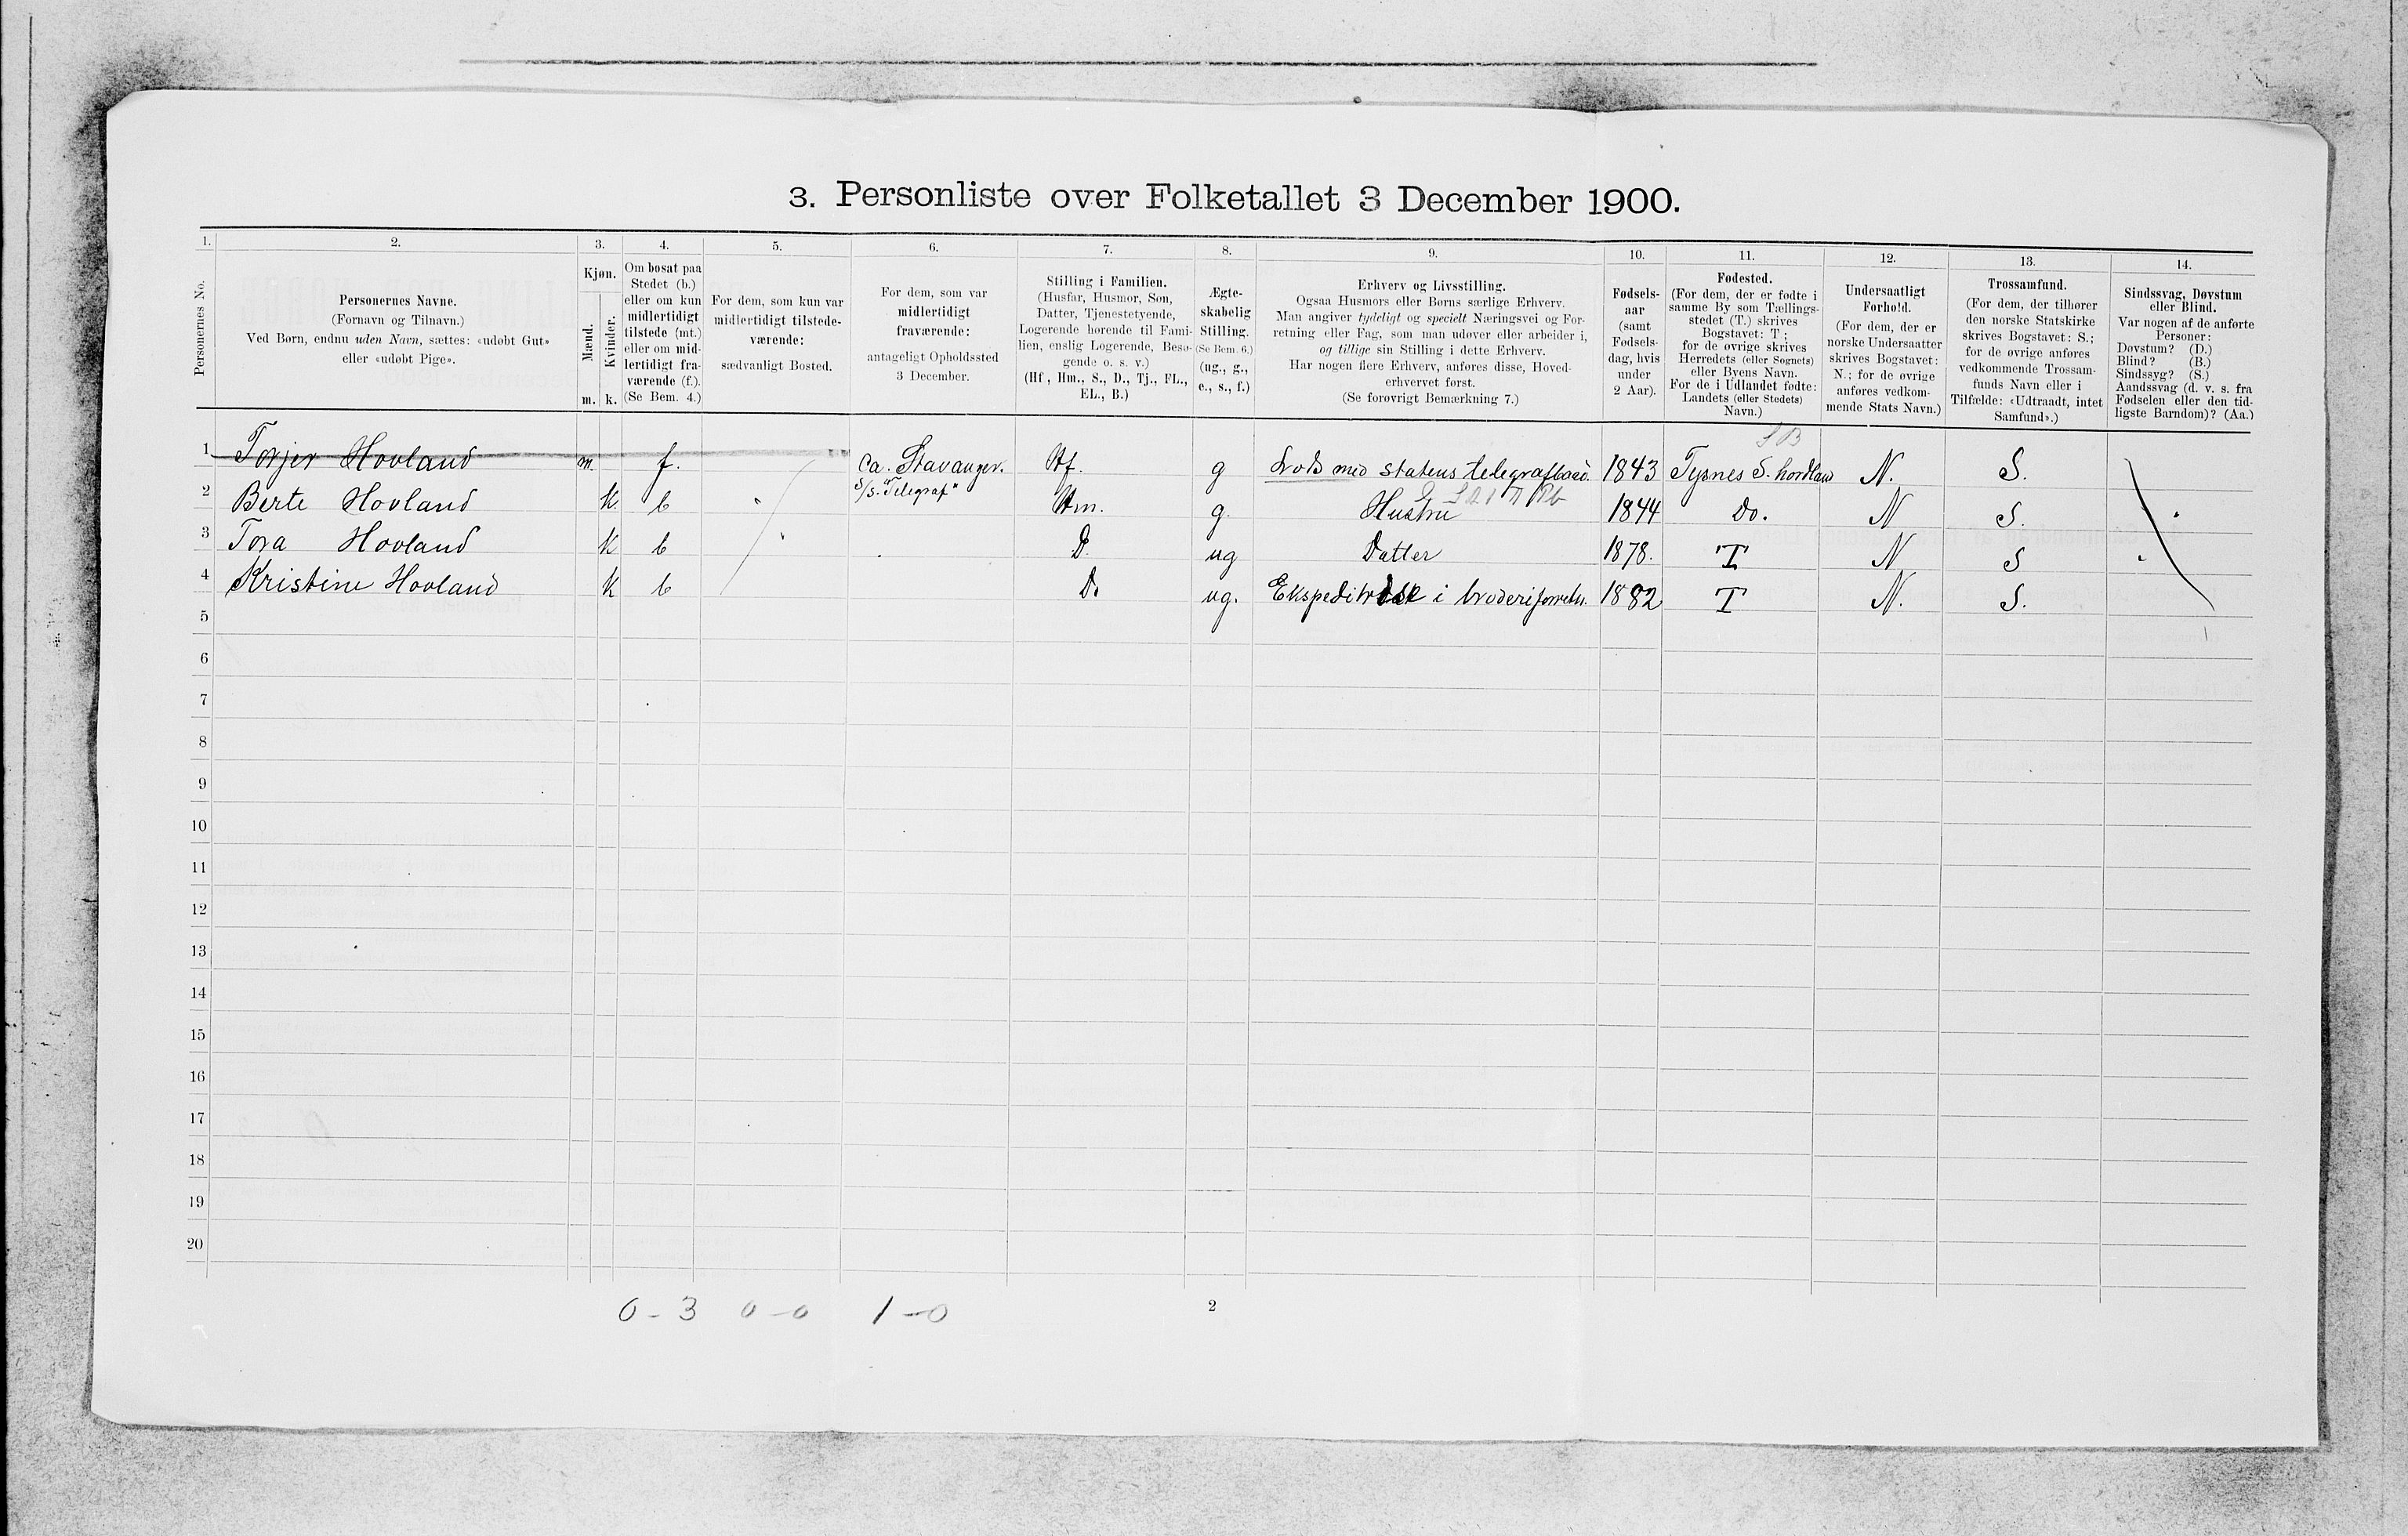 3. Personliste over Folketallet 3 December 1900.
1. 2. 3. 4. 5. 6. 7. 8. 9. 10. 11. 12. 13. 14.
Personernes No.
Personernes Navne.
(Fornavn og Tilnavn.)
Ved Børn, endnu uden Navn, sættes: «udøbt Gut»
eller «udøbt Pige».
Kjøn.
Mænd.
Kvinder.
m. k.
Om bosat paa
Stedet (b.)
eller om kun
midlertidigt
tilstede (mt.)
eller om mid-
lertidigt fra-
værende (f.).
(Se Bem. 4.)
For dem, som kun var
midlertidigt tilstede-
værende:
sædvanligt Bosted.
For dem, som var
midlertidigt
fraværende:
antageligt Opholdssted
3 December.
Stilling i Familien.
(Husfar, Husmor, Søn,
Datter, Tjenestetyende,
Logerende hørende til Fami-
lien, enslig Logerende, Besø-
gende o. s. v.)
(Hf, Hm., S., D., Tj., FL.,
EL., B.)
Ægte-
skabelig
Stilling.
(Se Bem. 6.)
(ug., g.,
e., s., f.)
Erhverv og Livsstilling.
Ogsaa Husmors eller Børns særlige Erhverv.
Man angiver tydeligt og specielt Næringsvei og For-
retning eller Fag, som man udøver eller arbeider i,
og tillige sin Stilling i dette Erhverv.
Har nogen flere Erhverv, anføres disse, Hoved-
erhvervet først.
(Se forøvrigt Bemærkning 7.)
Fødsels-
aar
(samt
Fødsels-
dag, hvis
under
2 Aar).
Fødested.
(For dem, der er fødte i
samme By som Tællings-
stedet (T.) skrives
Bogstavet: T ;
for de øvrige skrives
Herredets (eller Sognets)
eller Byens Navn.
For de i Udlandet fødte:
Landets (eller Stedets)
Navn.)
Undersaatligt
Forhold.
(For dem, der er
norske Undersaatter
skrives Bogstavet:
N.; for de øvrige
anføres vedkom-
mende Stats Navn.)
Trossamfund.
(For dem, der tilhører
den norske Statskirke
skrives Bogstavet: S.;
for de øvrige anføres
vedkommende Trossam-
funds Navn eller i
Tilfælde: «Udtraadt, intet
Samfund».)
Sindssvag, Døvstum
eller Blind.
Var nogen af de anførte
Personer:
Døvstum? (D.)
Blind? (B.)
Sindssyg? (S.)
Aandssvag (d. v. s. fra
Fødselen eller den tid-
ligste Barndom)? (Aa.)
S B
1 Torjer Hovland m. f. Ca. Stavanger. Hf. g Lods med statens telegrafbaad. 1843 Tysnes S. hordland N. S.
S/S. "Telegraf"
2 Berte Hovland K b " Hm. g. Hustru 1844 Do. N S. "
3 Tora Hovland K b " D. ug Datter 1878. T N S "
4 Kristine Hovland K b D. ug. Ekspeditrise i broderiforretn. 1882 T N. S.
5
6
7
8
9
10
11
12
13
14
15
16
17
18
19
20
0 - 3 0 - 0 1 - 0
2